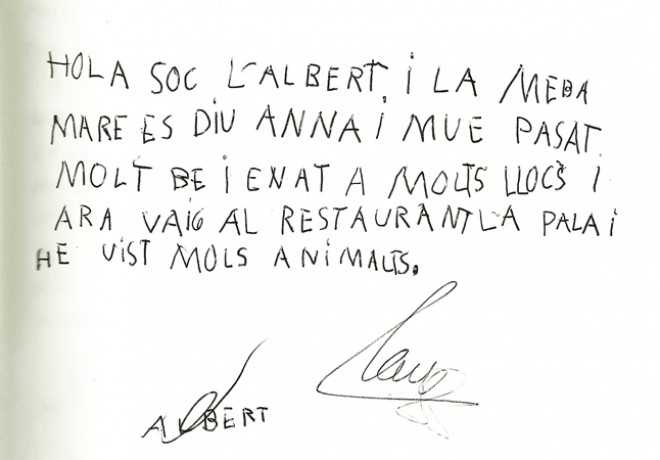 HOLA SOC L'ALBERT, I LA MEBA
MARE ES DIU ANNA I MUE PASAT
MOLT BE I ENAT A MOLTS LLOCS I
ARA VAIG AL RESTAURANT LA PALA I
HE VIST MOLS ANIMALTS.
ALBERT